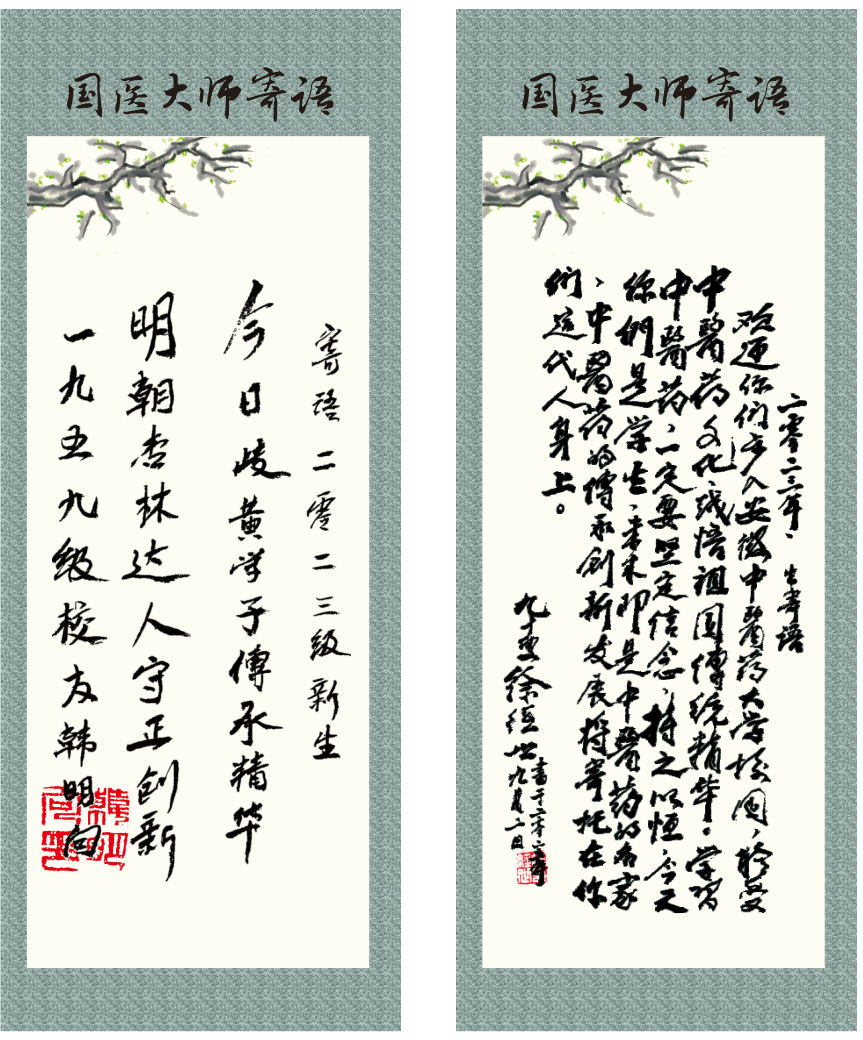 国医大师寄语
寄语二零二三级新生
今日岐黄学子傳承精华
明朝杏林达人守正创新
一九五九级校友韩明向
国医大师寄语
二零二三年，生寄语
欢迎你们步入安徽中醫药大学校园，受
中醫药文化，感悟祖国傳统精华。学習
中醫药，一定要坚定信念，持之以恒，今天
你们是学生，未来即是中醫药的名家
、中醫药的傳承创新发展将寄托在你
们这代人身上。
九十叟徐经世
书于二零二三年
九月二日